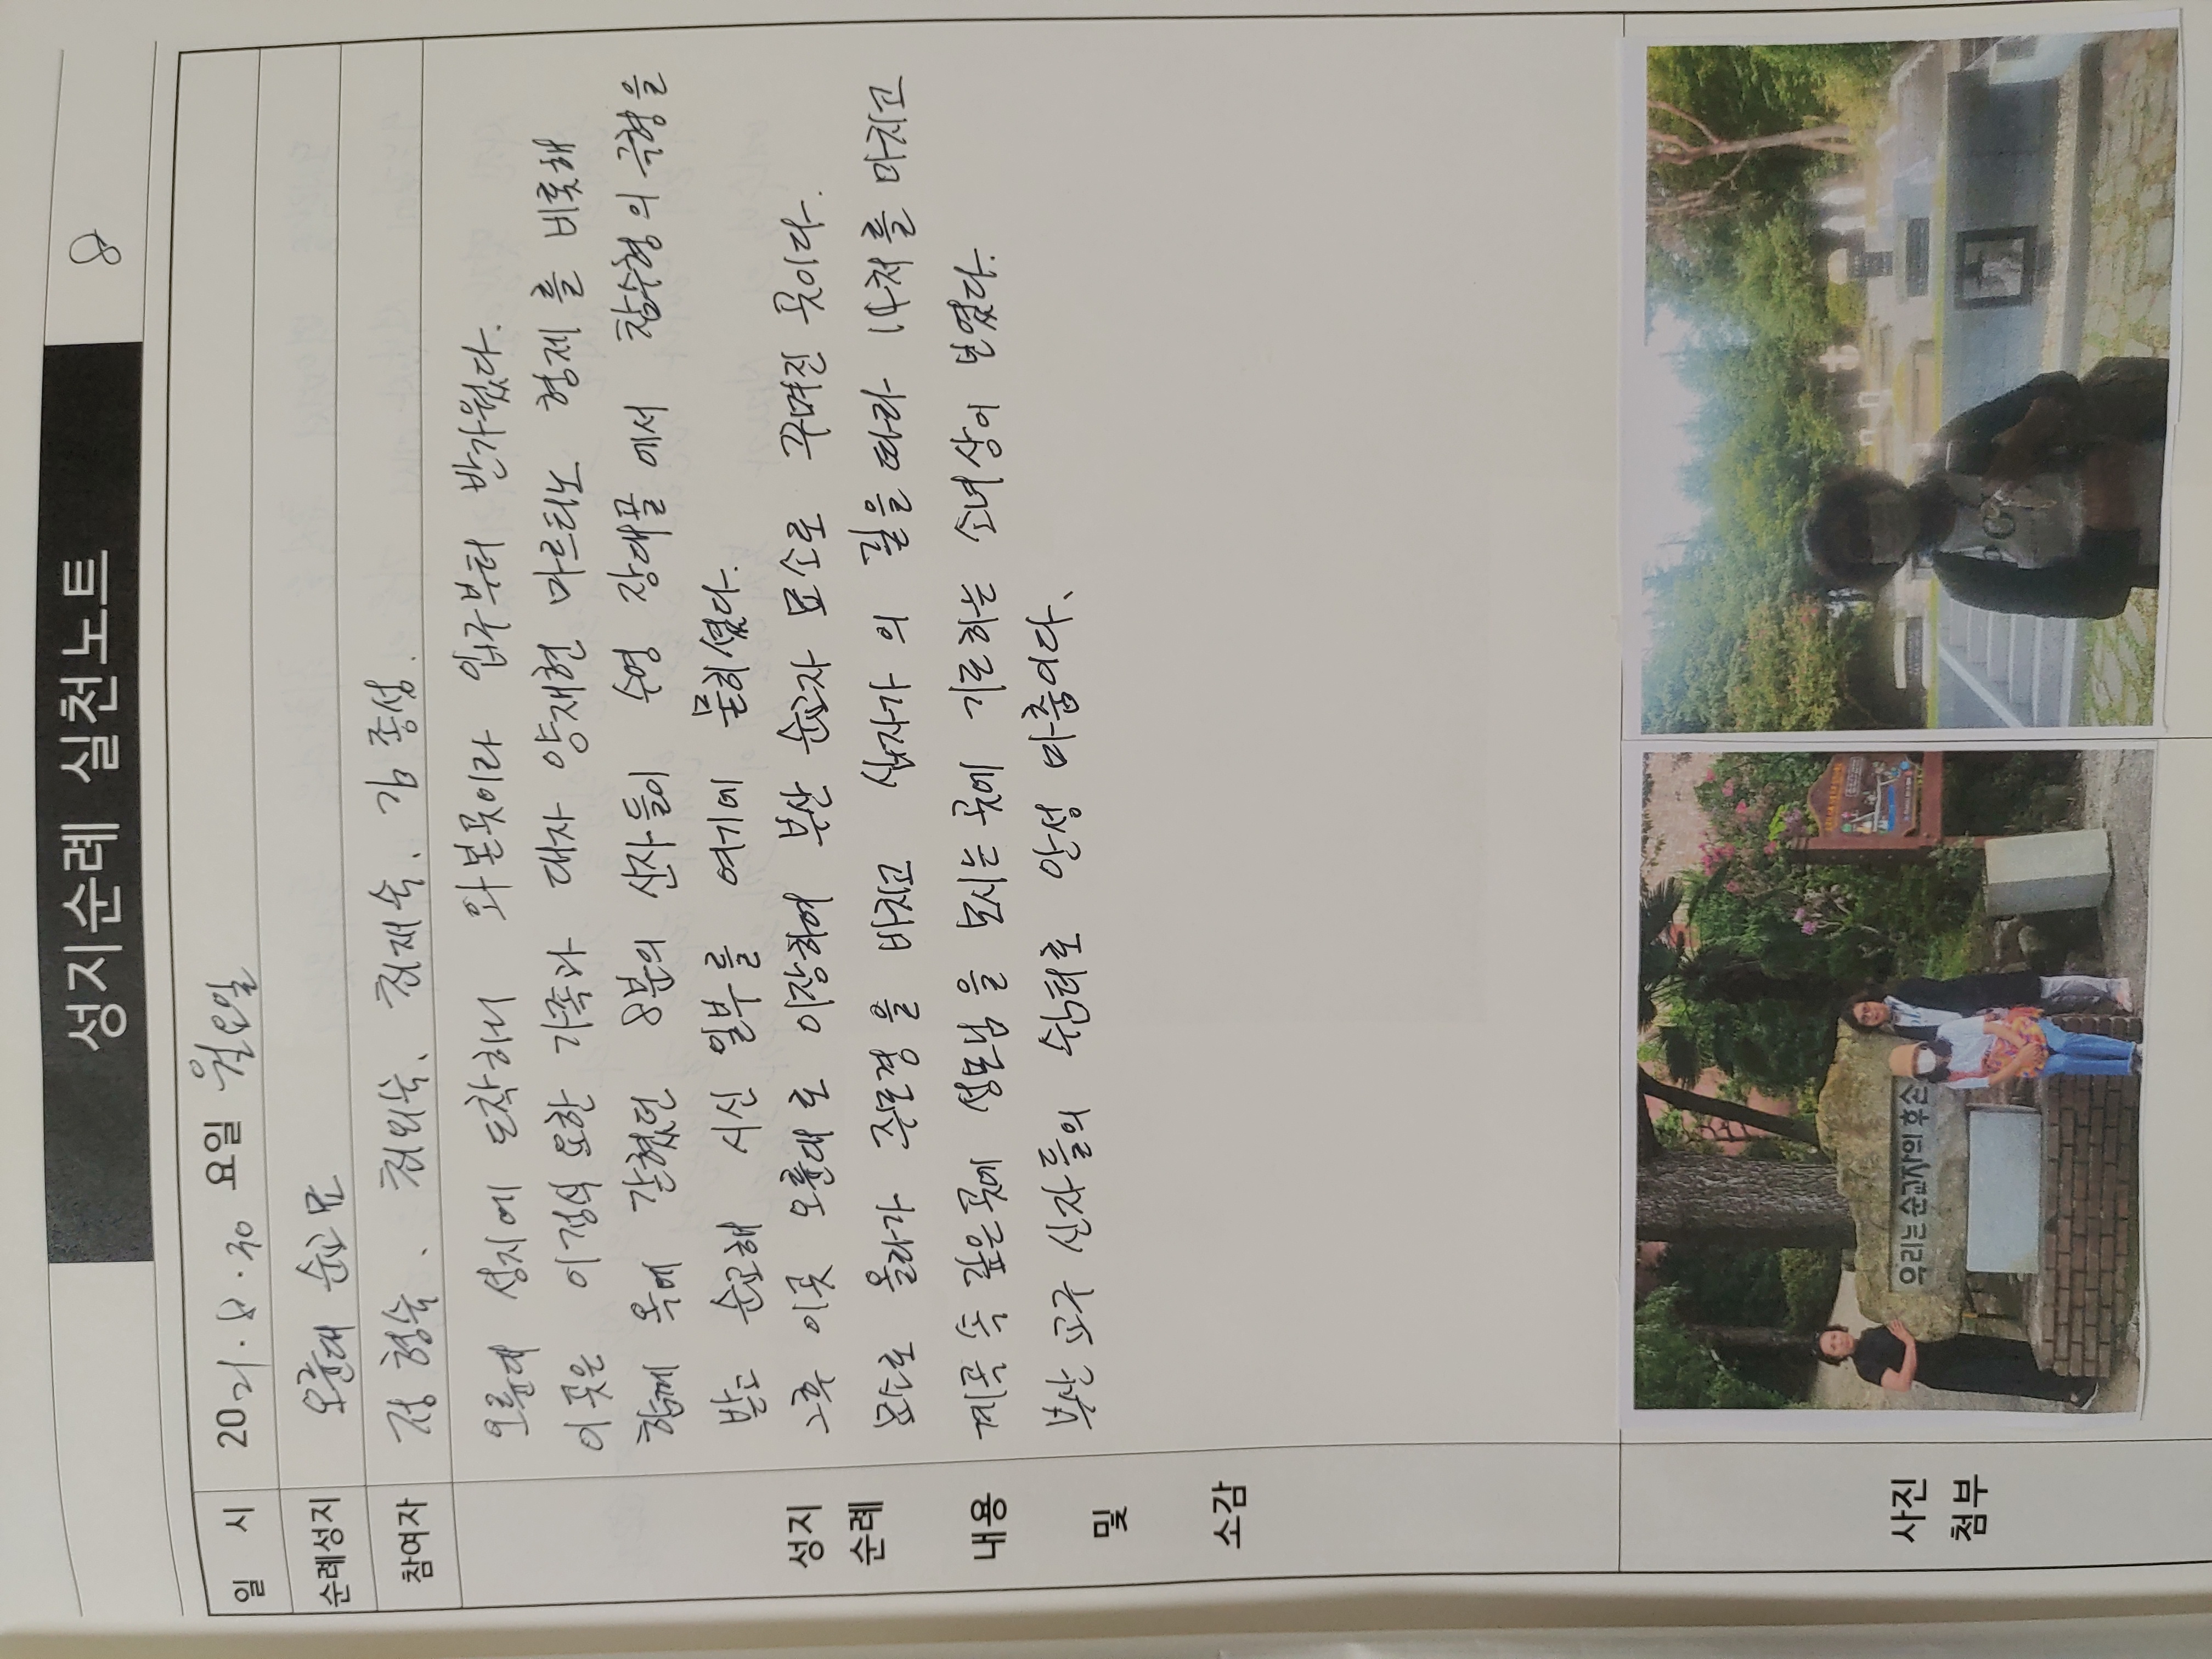 성지순례 실천노트
8
일 시
2021. 8. 30 요일 월요일
순례성지
오륜대 순교묘
참여자
정형숙. 최외숙. 최재숙. 김종성.
성지
순례
내용
및
소감
오륜대 성지에 도착하니 와본곳이라 입구부터 반가웠다.
이곳은 이정식 요한 가족과 대자 양재현 마르티노 형제를 비롯해
함께 옥에 갇혔던 8분의 신자들이 수영 장대골에서 참수형의 극형을
받고 순교해 시신 일부를 여기에 묻히셨다.
그후 이곳 오륜대로 이장하여 부산 순교자 묘소로 꾸며진 곳이다.
묘소로 올라가 주모경을 바치고 십자가의 길을 따라 14처를 마치고
계곡 속 깊은곳에 성모님을 모시는 곳에 기도하는 소녀상이 보였다.
부산교구 신자들의 쉼터로 안성 마춤이다.
사진
첨부
우리는 순교자의 후손